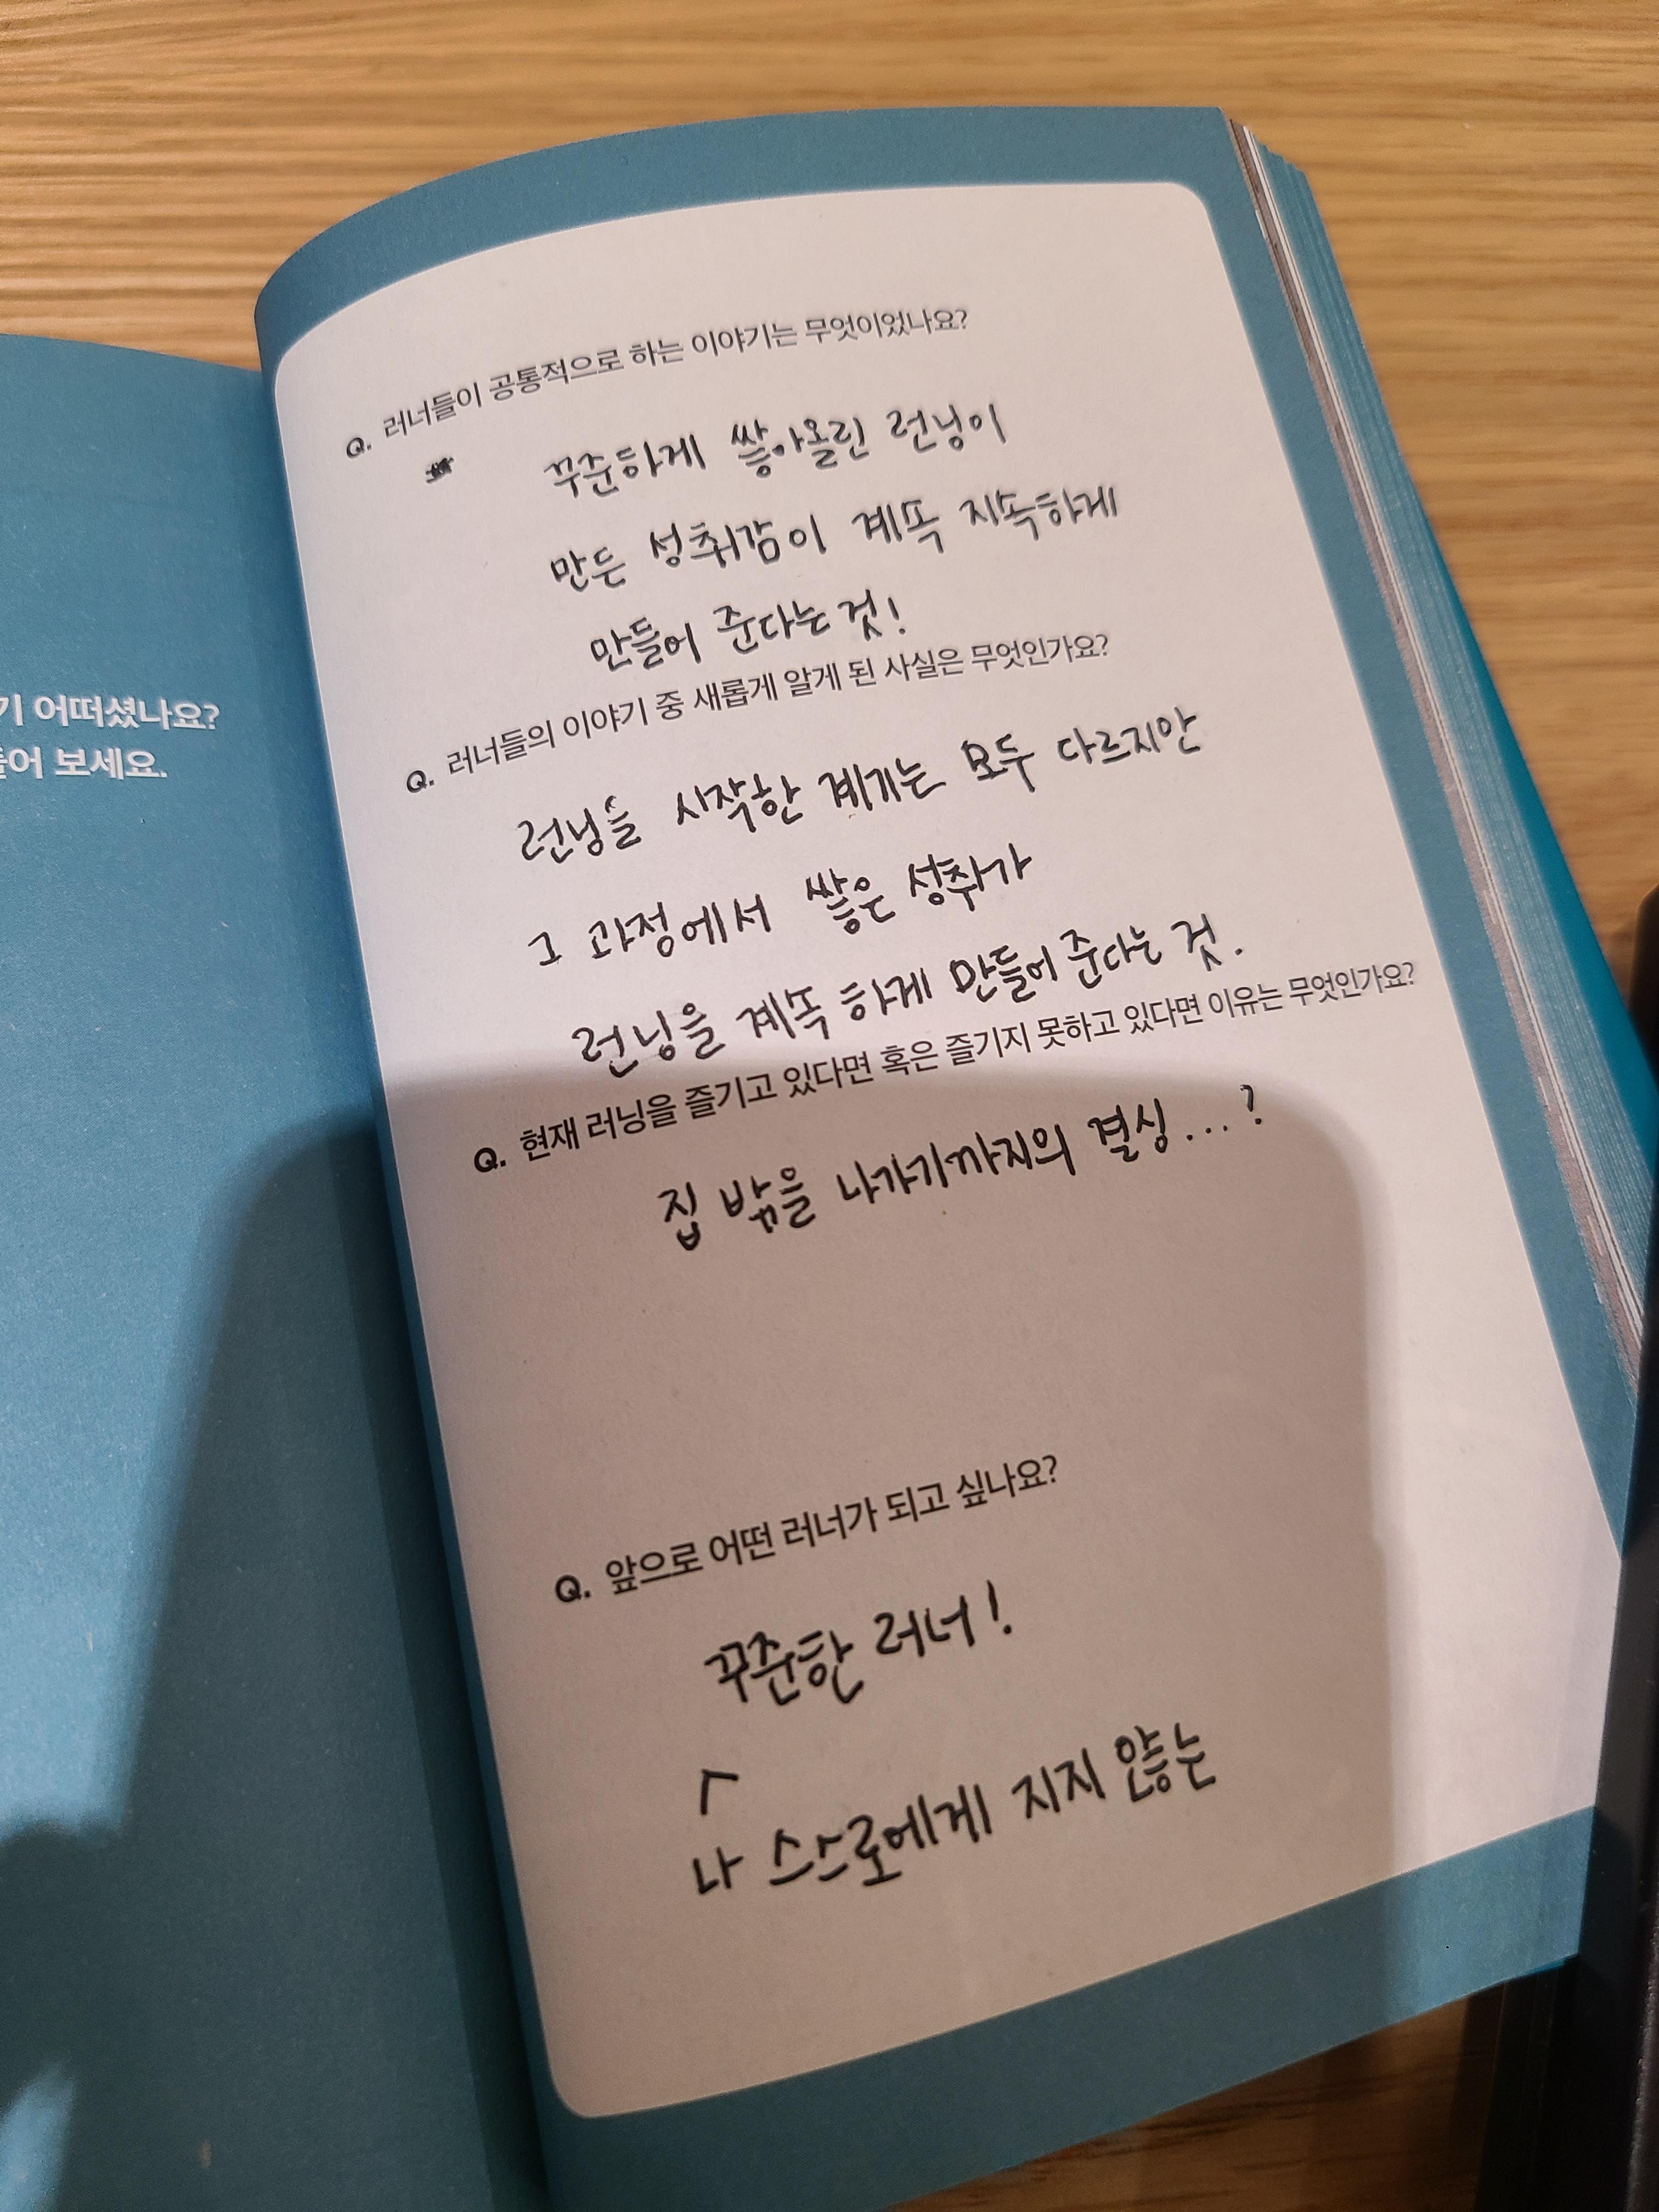 기 어떠셨나요?
들어 보세요.
Q. 러너들이 공통적으로 하는 이야기는 무엇이었나요?
꾸준하게 쌓아올린 런닝이
만든 성취감이 계속 지속하게
만들어 준다는 것!
Q. 러너들의 이야기 중 새롭게 알게 된 사실은 무엇인가요?
런닝을 시작한 계기는 모두 다르지만
그 과정에서 쌓은 성취가
런닝을 계속 하게 만들어 준다는 것.
Q. 현재 러닝을 즐기고 있다면 혹은 즐기지 못하고 있다면 이유는 무엇인가요?
집 밖을 나가기까지의 결심...?
Q. 앞으로 어떤 러너가 되고 싶나요?
꾸준한 러너!
나 스스로에게 지지 않는